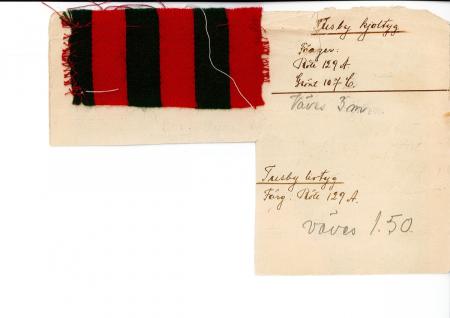 Tresby kjoltyg
Färger:
Röd 129 A
Grönt 107 C.
Väves 3 m
Tresby livtyg
Färg: Röd 129 A.
väves 1.50